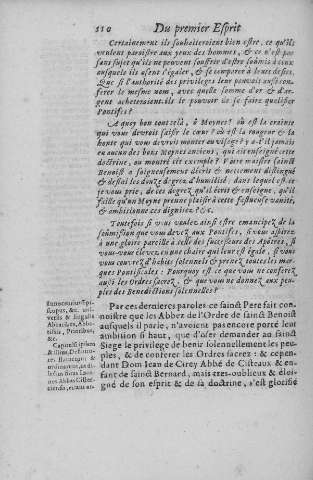 110 Du premier Esprit
Certainement ils souhaiteroient bien estre, ce qu'ils
veulent paroistre aux yeux des hommes, & ce n'est pas
sans sujet qu'ils ne peuvent souffrir d'estre soûmis à ceux
ausquels ils usent s'égaler, & se comporer à leurs desirs.
Que si l'authorité des Privileges leur pouvoit con-
ferer le mesme nom, avec quelle somme d'or & d'ar-
gent acheteroient-ils le pouvoir de se faire qualifier
Pontifes?
A quoy bon tout celà, ô Moynes? où est la crainte
qui vous devroit saisir le cœur? où est la rougeur & la
honte qui vous devroit monter au visage? y a-t'il jamais
eu aucun des bons Moynes anciens, qui ait enseigné cette
doctrine, ou montré tel exemple? Vôtre maistre sainct
Benoist a soigneusement décrit & nettement distingué
& désiné les douze degrez d'humilité: dans lequel est-ce
je vous prie, de ces degrez qu'il écrit & enseigne, qu'il
faille qu'un Moyne prenne plaisir à cette fastueuse vanité,
& ambitionne ces dignitez? &c.
Toutefois si vous vous estes emancipez de la
soûmission que vous devez aux Pontifes, si vous aspirez
à une gloire pareille à celle des successeurs des Apôtres, si
vous vous élevez en une chaire qui leur est égale, si vous
vous couvrez d'habits solennels & prenez toutes les mar-
ques Pontificales: Pourquoy est-ce que vous ne conferez
aussi les Ordres sacrez, & que vous ne donnez aux peu-
ples des Benedictions solennelles?
Par ces dernieres paroles ce sainct Pere fait con-
noistre que les Abbez de l'Ordre de sainct Benoist
ausquels il parle, n'avoient pas encore porté leur
ambition si haut, que d'oser demander au sainct
Siege le privilege de benir solennellement les peuples,
& de conferer les Ordres sacrez: & cepen-
dant Dom Jean de Cirey Abbé de Cisteaux & en-
fant de sainct Bernard, mais tres-oublieux & éloi-
gné de son esprit & de sa doctrine, s'est glorifié
Innocentius Epi-
scopus, &c. uni-
versis & singulis
Abbatibus, Abba-
tissis, Prioribus,
&c.